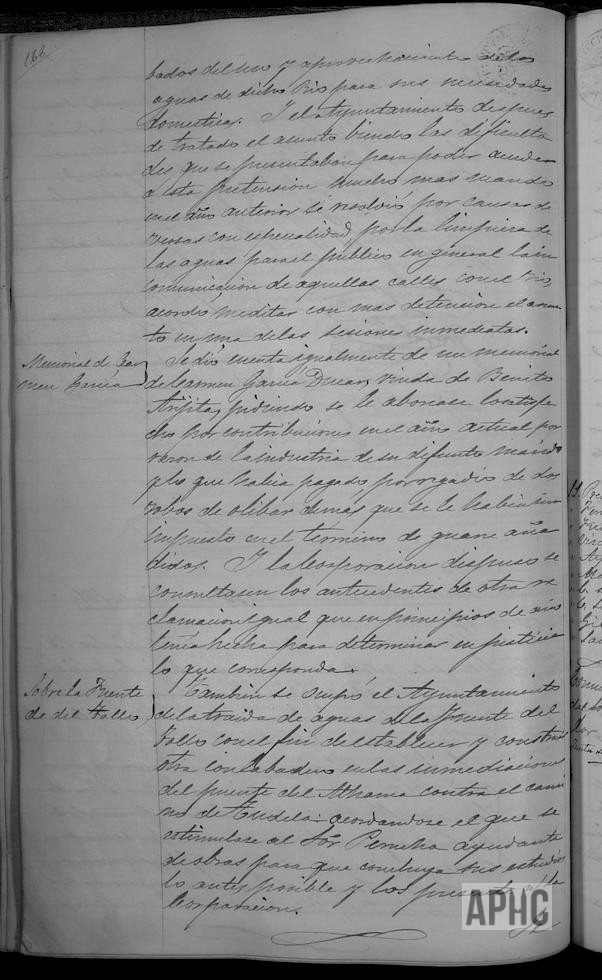 168
bados del uso y aprovechamiento de las
aguas de dicho Rio para sus necesidades
domesticas. Y el Ayuntamiento despues
de tratado el asunto biendo las dificulta
des que se presentaban para poder acceder
a esta pretension mucho mas cuando
en el año anterior se resolvió por causas di
versas con especialidad por la limpieza de
las aguas para el publico en general la in
comunicacion de aquellas calles con el Rio,
acordó meditar con mas detencion el asun
to en una de las sesiones inmediatas.
Memorial de Car
men Garcia
Se dio cuenta igualmente de un memorial
de Carmen Garcia Duar, viuda de Benito
pidiendo se le abonase lo satisfe
cho por contribuciones en el año actual por
razon de la industria de su difunto marido
y lo que habia pagado por regadio de dos
robos de olibar demas que se le habia
impuesto en el termino de aña
didos. Y la Corporacion dispuso se
consultasen los antecedentes de otra re
clamacion igual que en principios de año
tenia hecha para determinar en justicia
lo que corresponda.
Sobre la Fuente
de del Follo
Tambien se ocupó el Ayuntamiento
de la traida de aguas de la Fuente del
Follo con el fin de establecer y construir
otra con labadero en las inmediaciones
del puente del Alhama contra el cami
no de Tudela: acordandose el que se
estimulase al Sor Perucha ayudante
de obras para que concluya sus estudios
lo antes posible y los presente a la
Corporacion.
APHC